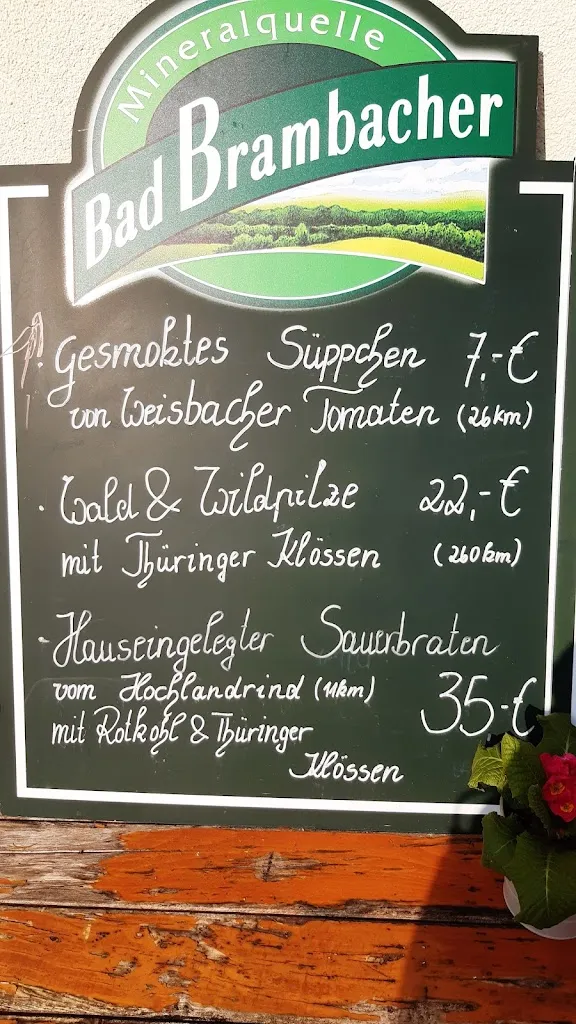 Mineralquelle
Bad Brambacher
· Gesmoktes Süppchen 7,-€
von Weisbacher Tomaten (26km)
· Wald & Wildpilze 22,-€
mit Thüringer Klössen (260km)
- Hauseingelegter Sauerbraten
vom Hochlandrind (11km) 35-€
mit Rotkohl & Thüringer
Klössen